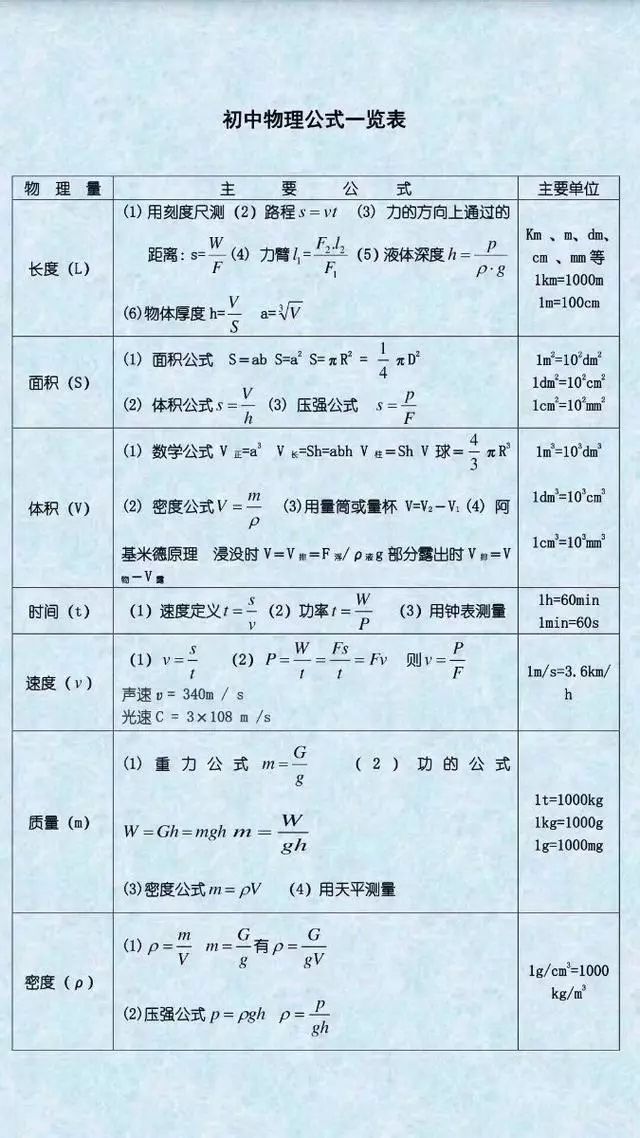 初中物理公式一览表
物 理 量 主 要 公 式 主要单位
长度（L）
(1) 用刻度尺测（2）路程 s = vt （3） 力的方向上通过的
距离：s=W/F (4) 力臂 l₁=F₂.l₂/F₁ (5)液体深度 h = p/ρ·g
(6)物体厚度 h=V/S a=∛V
Km 、m、dm、
cm 、mm等
1km=1000m
1m=100cm
面积（S）
(1) 面积公式 S=ab S=a² S=πR² = 1/4 πD²
(2) 体积公式 s = V/h (3) 压强公式 s = p/F
1m²=10²dm²
1dm²=10²cm²
1cm²=10²mm²
体积（V）
(1) 数学公式 V正=a³ V长=Sh=abh V柱=Sh V球=4/3 πR³
(2) 密度公式 V = m/ρ (3)用量筒或量杯 V=V₂－V₁ (4) 阿
基米德原理 浸没时 V=V排=F浮/ρ液g 部分露出时 V排=V
物－V露
1m³=10³dm³
1dm³=10³cm³
1cm³=10³mm³
时间（t）
（1）速度定义 t = s/v （2）功率 t = W/P （3）用钟表测量
1h=60min
1min=60s
速度（v）
（1） v = s/t （2） P = W/t = Fs/t = Fv 则 v = P/F
声速 υ= 340m / s
光速 C = 3×108 m /s
1m/s=3.6km/
h
质量（m）
(1) 重 力 公 式 m = G/g （ 2 ） 功 的 公 式
W = Gh = mgh m = W/gh
(3)密度公式 m = ρV （4）用天平测量
1t=1000kg
1kg=1000g
1g=1000mg
密度（ρ）
(1) ρ = m/V m = G/g 有 ρ = G/gV
(2)压强公式 p = ρgh ρ = p/gh
1g/cm³=1000
kg/m³